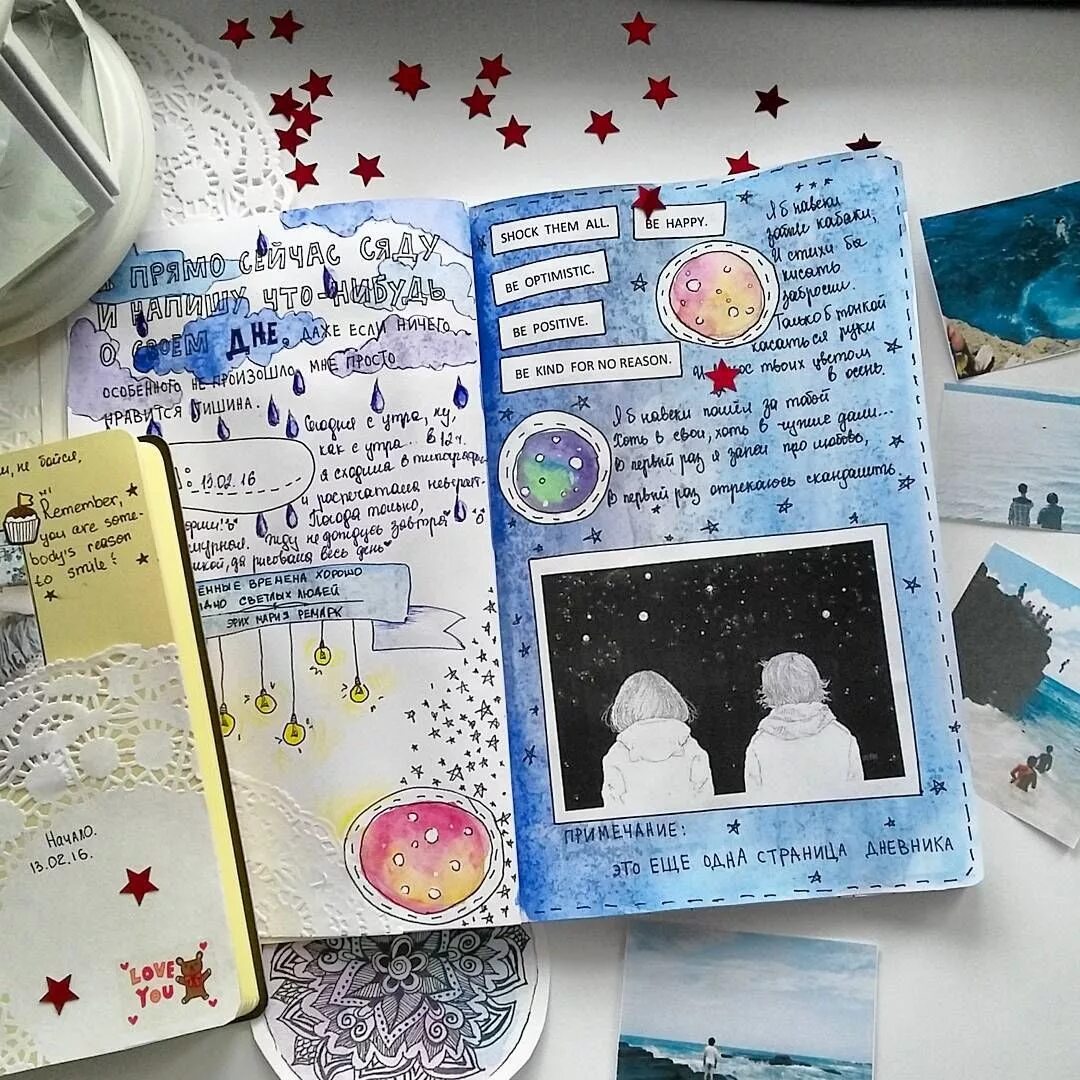 Я ПРЯМО СЕЙЧАС СЯДУ
И НАПИШУ ЧТО-НИБУДЬ
О СВОЕМ ДНЕ. ДАЖЕ ЕСЛИ НИЧЕГО
ОСОБЕННОГО НЕ ПРОИЗОШЛО, МНЕ ПРОСТО
НРАВИТСЯ ТИШИНА.
13.02.16
Сегодня с утра, ну,
как с утра... в 12 ч.
я сходила в типографи
и распечатала
Погода только,
жду не дождусь завтра
да рисовала весь день
ЕННЫЕ ВРЕМЕНА ХОРОШО
ИДНО СВЕТЛЫХ ЛЮДЕЙ
ЭРИХ МАРИЯ РЕМАРК
SHOCK THEM ALL.
BE HAPPY.
BE OPTIMISTIC.
BE POSITIVE.
BE KIND FOR NO REASON.
Я б навеки
забыл кабаки,
И стихи бы
писать
забросил.
Только б тонкой
касаться руки
И волос твоих цветом
в осень.
Я б навеки пошёл за тобой
Хоть в свои, хоть в чужие дали...
В первый раз я запел про любовь,
В первый раз отрекаюсь скандалить.
ПРИМЕЧАНИЕ:
ЭТО ЕЩЕ ОДНА СТРАНИЦА ДНЕВНИКА
не бойся,
Hi
Remember,
you are some-
body's reason
to smile!
Начало.
13.02.16.
LOVE
YOU